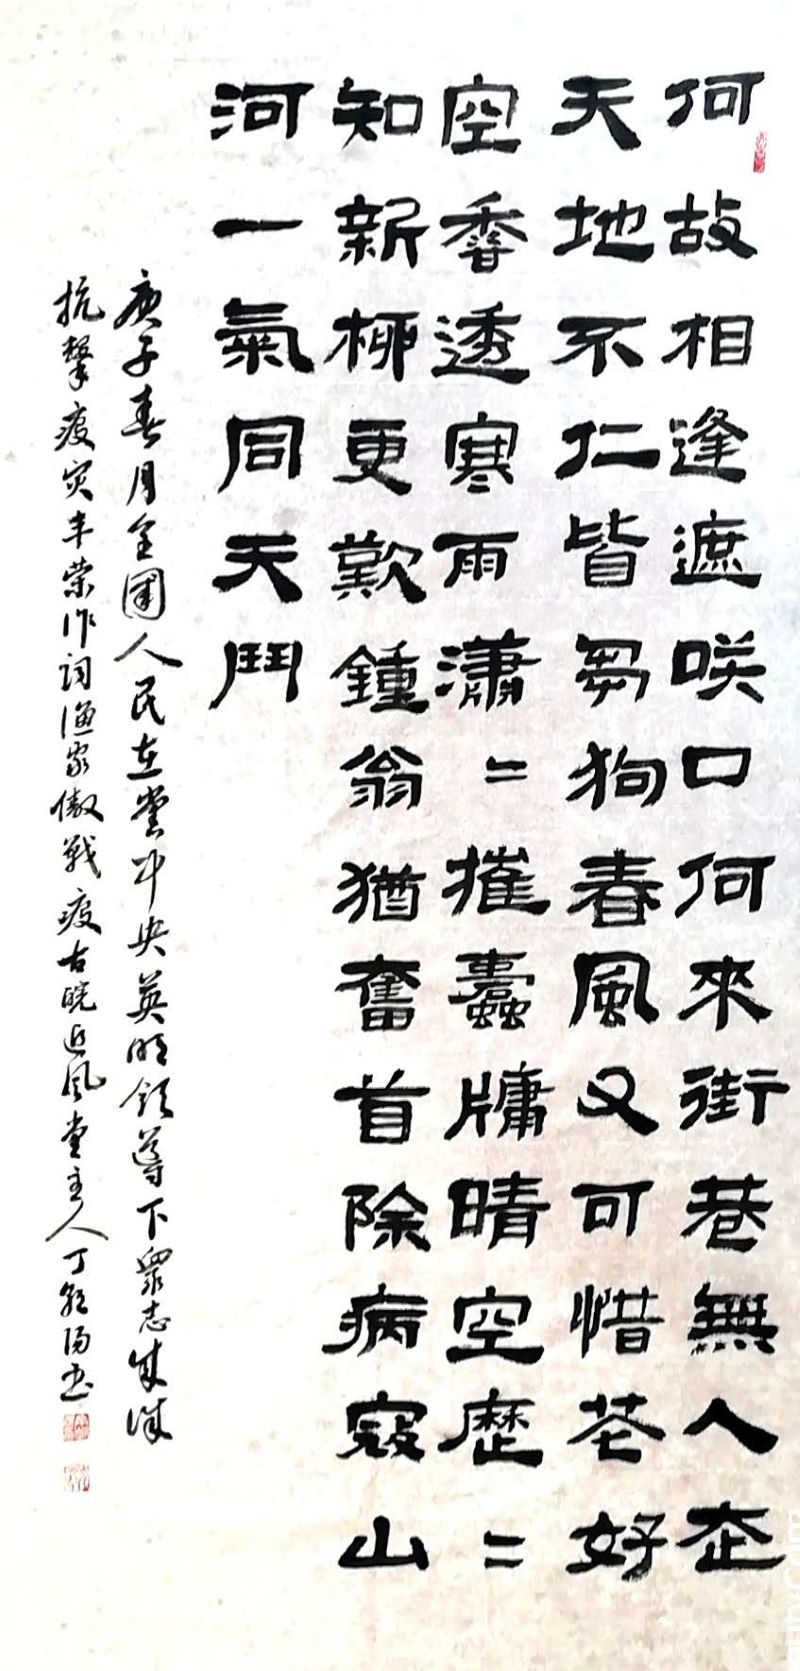 何故相逢遮咲口何來街巷無人走
天地不仁皆芻狗春風又可惜花好
空香透寒雨瀟〻摧蠹牖晴空歷〻
知新柳更歎鍾翁猶奮首除病寇山
河一氣同天鬥
庚子春月全國人民在黨中央英明領導下眾志成城
抗擊疫灾丰荣作词渔家傲战疫古皖近风堂主人丁书